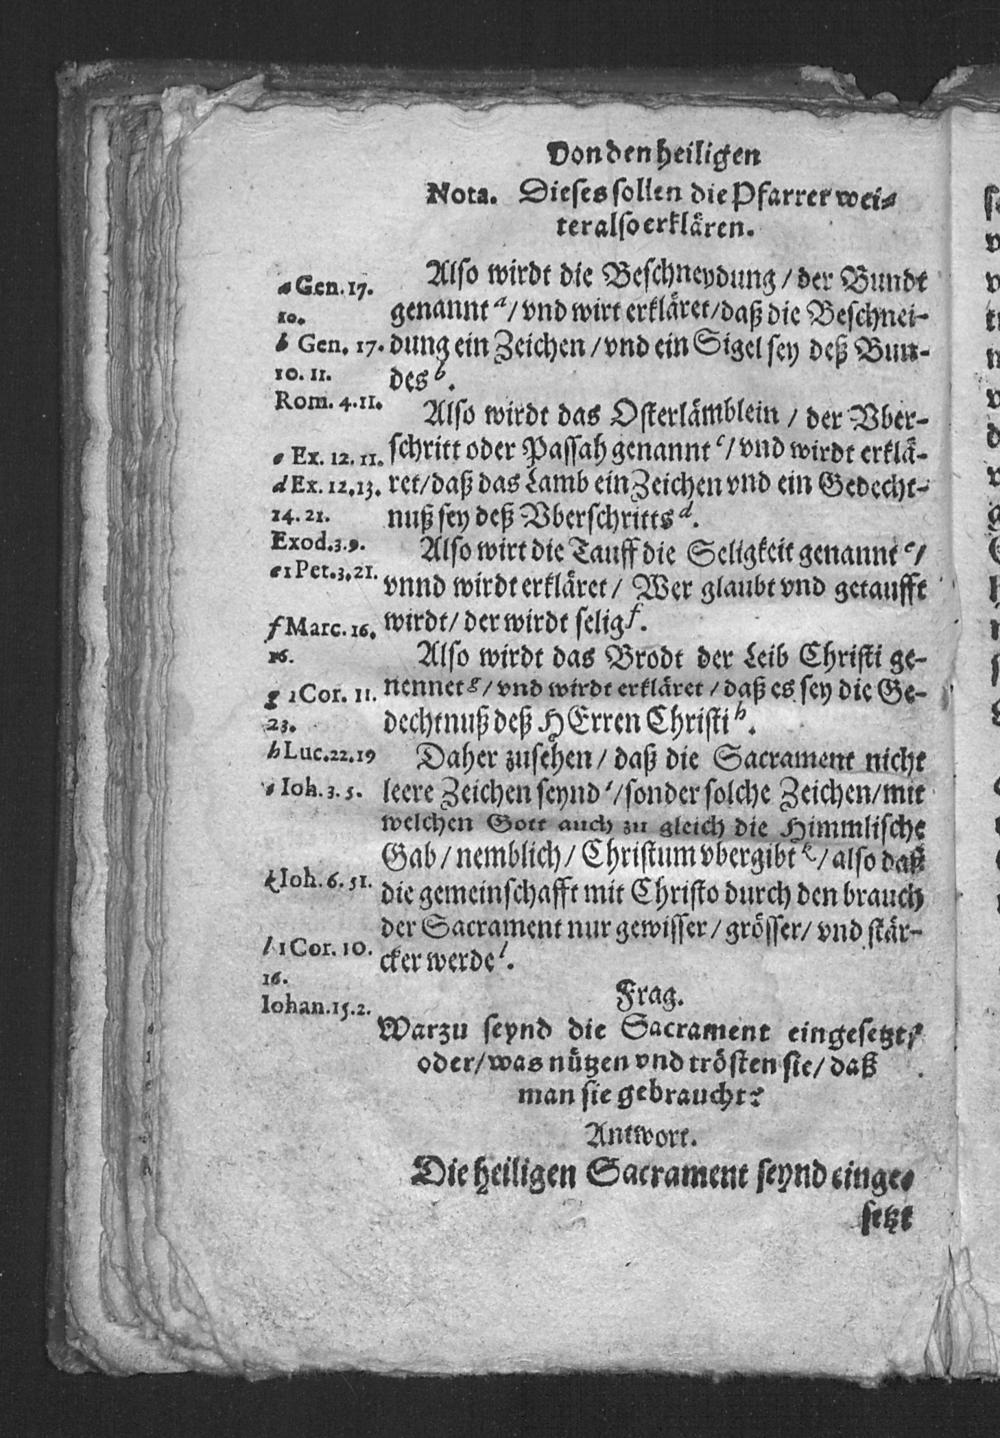 Von den heiligen
Nota. Dieses sollen die Pfarrer wei-
ter also erklären.
Also wirdt die Beschneydung / der Bundt
genannt a / vnd wirt erkläret / daß die Beschnei-
dung ein Zeichen / vnd ein Sigel sey deß Bun-
des b.
Also wirdt das Osterlämblein / der Vber-
schritt oder Passah genannt c / vnd wirdt erklä-
ret / daß das Lamb ein Zeichen vnd ein Gedecht-
nuß sey deß Vberschritts d.
Also wirt die Tauff die Seligkeit genannt e /
vnnd wirdt erkläret / Wer glaubt vnd getaufft
wirdt / der wirdt selig f.
Also wirdt das Brodt der Leib Christi ge-
nennet g / vnd wirdt erkläret / daß es sey die Ge-
dechtnuß deß HErren Christi h.
Daher zusehen / daß die Sacrament nicht
leere Zeichen seynd i / sonder solche Zeichen / mit
welchen Gott auch zu gleich die Himmlische
Gab / nemblich / Christum vbergibt k / also daß
die gemeinschafft mit Christo durch den brauch
der Sacrament nur gewisser / grösser / vnd stär-
cker werde l.
Frag.
Warzu seynd die Sacrament eingesetzt /
oder / was nützen vnd trösten sie / daß
man sie gebraucht?
Antwort.
Die heiligen Sacrament seynd einge-
setzt
a Gen. 17.
10.
b Gen. 17.
10. 11.
Rom. 4.11.
c Ex. 12. 11.
d Ex. 12.13.
14. 21.
Exod.3.9.
e 1 Pet.3.21.
f Marc. 16.
16.
g 1 Cor. 11.
23.
h Luc.22.19
i Ioh. 3. 5.
k Ioh. 6. 51.
l 1 Cor. 10.
16.
Iohan.15.2.